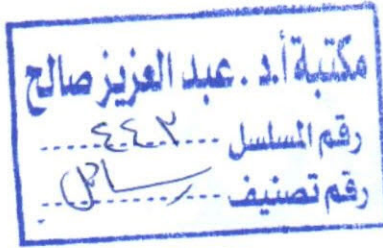 مكتبة أ.د. عبد العزيز صالح
رقم المسلسل ....٤٤٢....
رقم تصنيف ....رسائل....